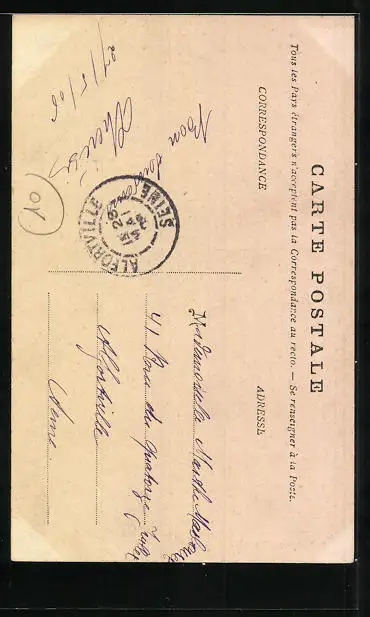 CARTE POSTALE
Tous les Pays étrangers n'acceptent pas la Correspondance au recto. — Se renseigner à la Poste.
CORRESPONDANCE
ADRESSE
Mademoiselle Marthe
41 Rue du Quatorze Juillet
Alfortville
Seine
Bon
27/5/06
ALFORTVILLE
SEINE
28